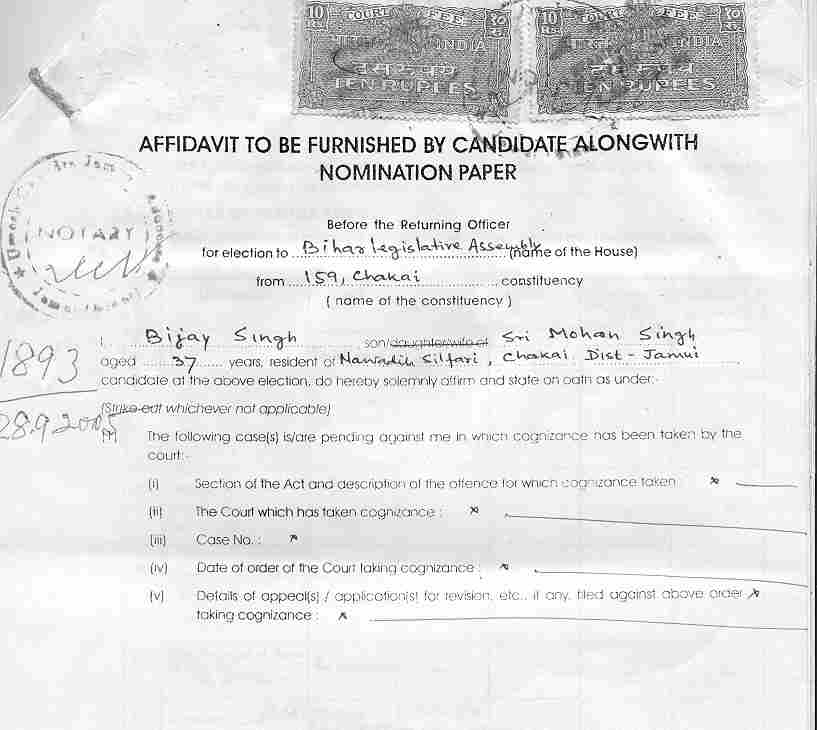 10 COURT FEE १०
Rs. रु.
भारत INDIA
दस रुपये
TEN RUPEES
10 COURT FEE १०
Rs. रु.
भारत INDIA
दस रुपये
TEN RUPEES
AFFIDAVIT TO BE FURNISHED BY CANDIDATE ALONGWITH
NOMINATION PAPER
NOTARY
Before the Returning Officer
for election to Bihar legislative Assembly (name of the House)
from 159, Chakai constituency
( name of the constituency )
I, Bijay Singh, son/daughter/wife of Sri Mohan Singh
aged 37 years, resident of Nawadih Silfari, Chakai Dist - Jamui
candidate at the above election, do hereby solemnly affirm and state on oath as under:-
1893
(Strike-out whichever not applicable)
28.9.2005
The following case(s) is/are pending against me in which cognizance has been taken by the
court:-
(i) Section of the Act and description of the offence for which cognizance taken : x
(ii) The Court which has taken cognizance : x
(iii) Case No. : x
(iv) Date of order of the Court taking cognizance : x
(v) Details of appeal(s) / application(s) for revision, etc., if any, filed against above order x
taking cognizance : x